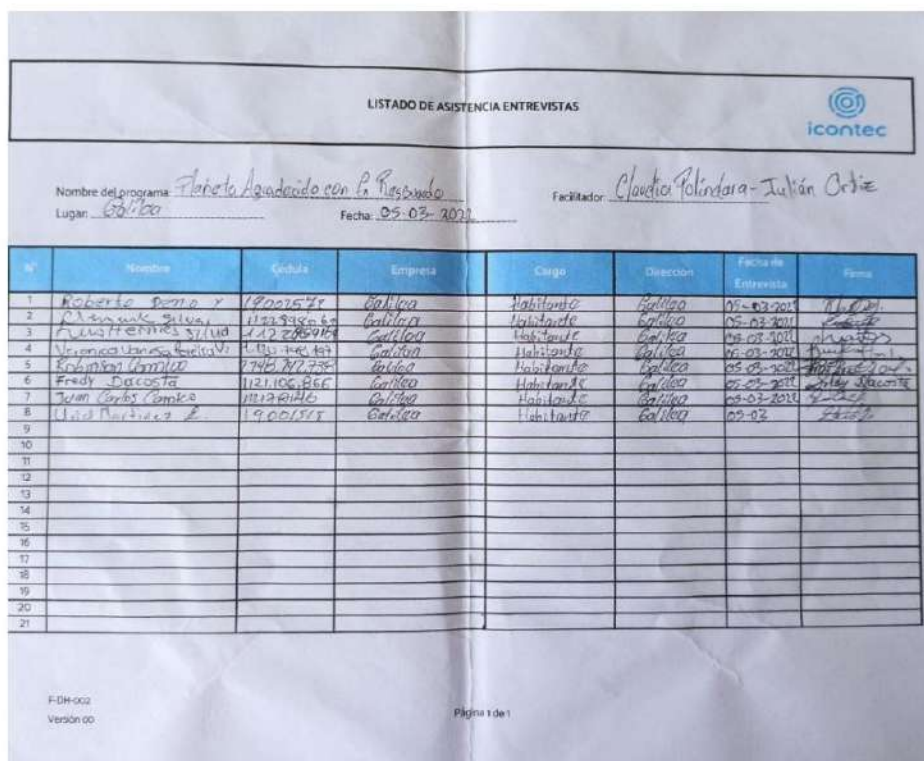 LISTADO DE ASISTENCIA ENTREVISTAS
icontec
Nombre del programa: Planeto Agradecido con Resguardo Facilitador: Claudia Polindara - Julián Ortiz
Lugar: Galilea Fecha: 05-03-2022
N° Nombre Cédula Empresa Cargo Dirección Fecha de Entrevista Firma
1 Roberto 19002577 Galilea Habitante Galilea 05-03-2022
2 Silva Galilea Habitante Galilea 05-03-2022
3 Luis Hermes Silva Galilea Habitante Galilea 05-03-2022
4 Veronica Vanesa Galilea Habitante Galilea 05-03-2022
5 Robinson Galilea Habitante Galilea 05-03-2022
6 Fredy Dacosta 1121.106.866 Galilea Habitante Galilea 05-03-2022 Fredy Dacosta
7 Juan Carlos Galilea Habitante Galilea 05-03-2022
8 Martinez 19001515 Galilea Habitante Galilea 05-03
9
10
11
12
13
14
15
16
17
18
19
20
21
F-DH-002
Versión 00
Página 1 de 1